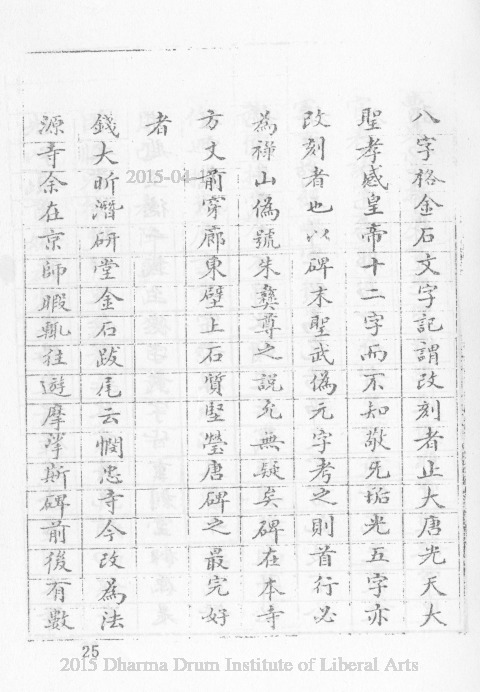 八字格金石文字記謂改刻者止大唐光天大
聖孝感皇帝十二字而不知敬无垢光五字亦
改刻者也以碑末聖武偽元字考之則首行必
為祿山偽號朱彝尊之說允無疑矣碑在本寺
方丈前穿廊東壁上石質堅瑩唐碑之最完好
者
錢大昕潛研堂金石跋尾云憫忠寺今改為法
源寺余在京師暇輒往遊摩挲斯碑前後有數
2015-04-1
25
2015 Dharma Drum Institute of Liberal Arts